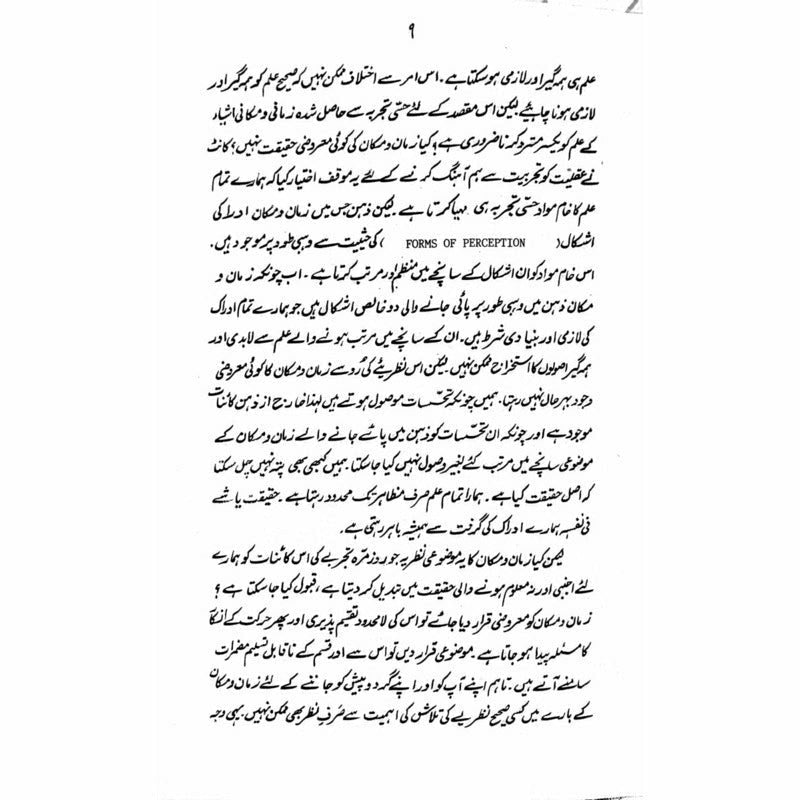 ۹
علم ہی ہمہ گیر اور لازمی ہو سکتا ہے۔ اس امر سے اختلاف ممکن نہیں کہ صحیح علم کو ہمہ گیر اور
لازمی ہونا چاہئیے لیکن اس مقصد کے لئے حسّی تجربہ سے حاصل شدہ زمانی و مکانی اشیاء
کے علم کو یکسر مسترد کرنا ضروری ہے؟ کیا زمان و مکان کی کوئی معروضی حقیقت نہیں؟ کانٹ
نے عقلیّت کو تجربیت سے ہم آہنگ کرنے کے لئے یہ موقف اختیار کیا کہ ہمارے تمام
علم کا خام مواد حسّی تجربہ ہی مہیا کرتا ہے۔ لیکن ذہن جس میں زمان و مکان ادراک کی
اشکال ( FORMS OF PERCEPTION ) کی حیثیت سے وہبی طور پر موجود ہیں۔
اس خام مواد کو ان اشکال کے سانچے میں منظم اور مرتب کرتا ہے۔ اب چونکہ زمان و
مکان ذہن میں وہبی طور پر پائی جانے والی دو خالص اشکال ہیں جو ہمارے تمام ادراک
کی لازمی اور بنیادی شرط ہیں۔ ان کے سانچے میں مرتب ہونے والے علم سے لابدی اور
ہمہ گیر اصولوں کا استخراج ممکن نہیں۔ لیکن اس نظریئے کی رُو سے زمان و مکان کا کوئی معروضی
وجود بہر حال نہیں رہتا۔ ہمیں چونکہ تحسّسات موصول ہوتے ہیں لہٰذا خارج از ذہن کائنات
موجود ہے اور چونکہ ان تحسّسات کو ذہن میں پائے جانے والے زمان و مکان کے
موضوعی سانچے میں مرتب کئے بغیر وصول نہیں کیا جا سکتا۔ ہمیں کبھی بھی پتہ نہیں چل سکتا
کہ اصل حقیقت کیا ہے۔ ہمارا تمام علم صرف مظاہر تک محدود رہتا ہے۔ حقیقت یا شے
فی نفسہٖ ہمارے ادراک کی گرفت سے ہمیشہ باہر رہتی ہے۔
لیکن کیا زمان و مکان کا یہ موضوعی نظریہ جو روزمرّہ تجربے کی اس کائنات کو ہمارے
لئے اجنبی اور نہ معلوم ہونے والی حقیقت میں تبدیل کر دیتا ہے، قبول کیا جا سکتا ہے؟
زمان و مکان کو معروضی قرار دیا جائے تو اس کی لامحدود تقسیم پذیری اور پھر حرکت کے انکار
کا مسئلہ پیدا ہو جاتا ہے۔ موضوعی قرار دیں تو اس سے اور قسم کے ناقابل تسلیم مضمرات
سامنے آتے ہیں۔ تاہم اپنے آپ کو اور اپنے گرد و پیش کو جاننے کے لئے زمان و مکان
کے بارے میں کسی صحیح نظریے کی تلاش کی اہمیت سے صَرفِ نظر بھی ممکن نہیں۔ یہی وجہ